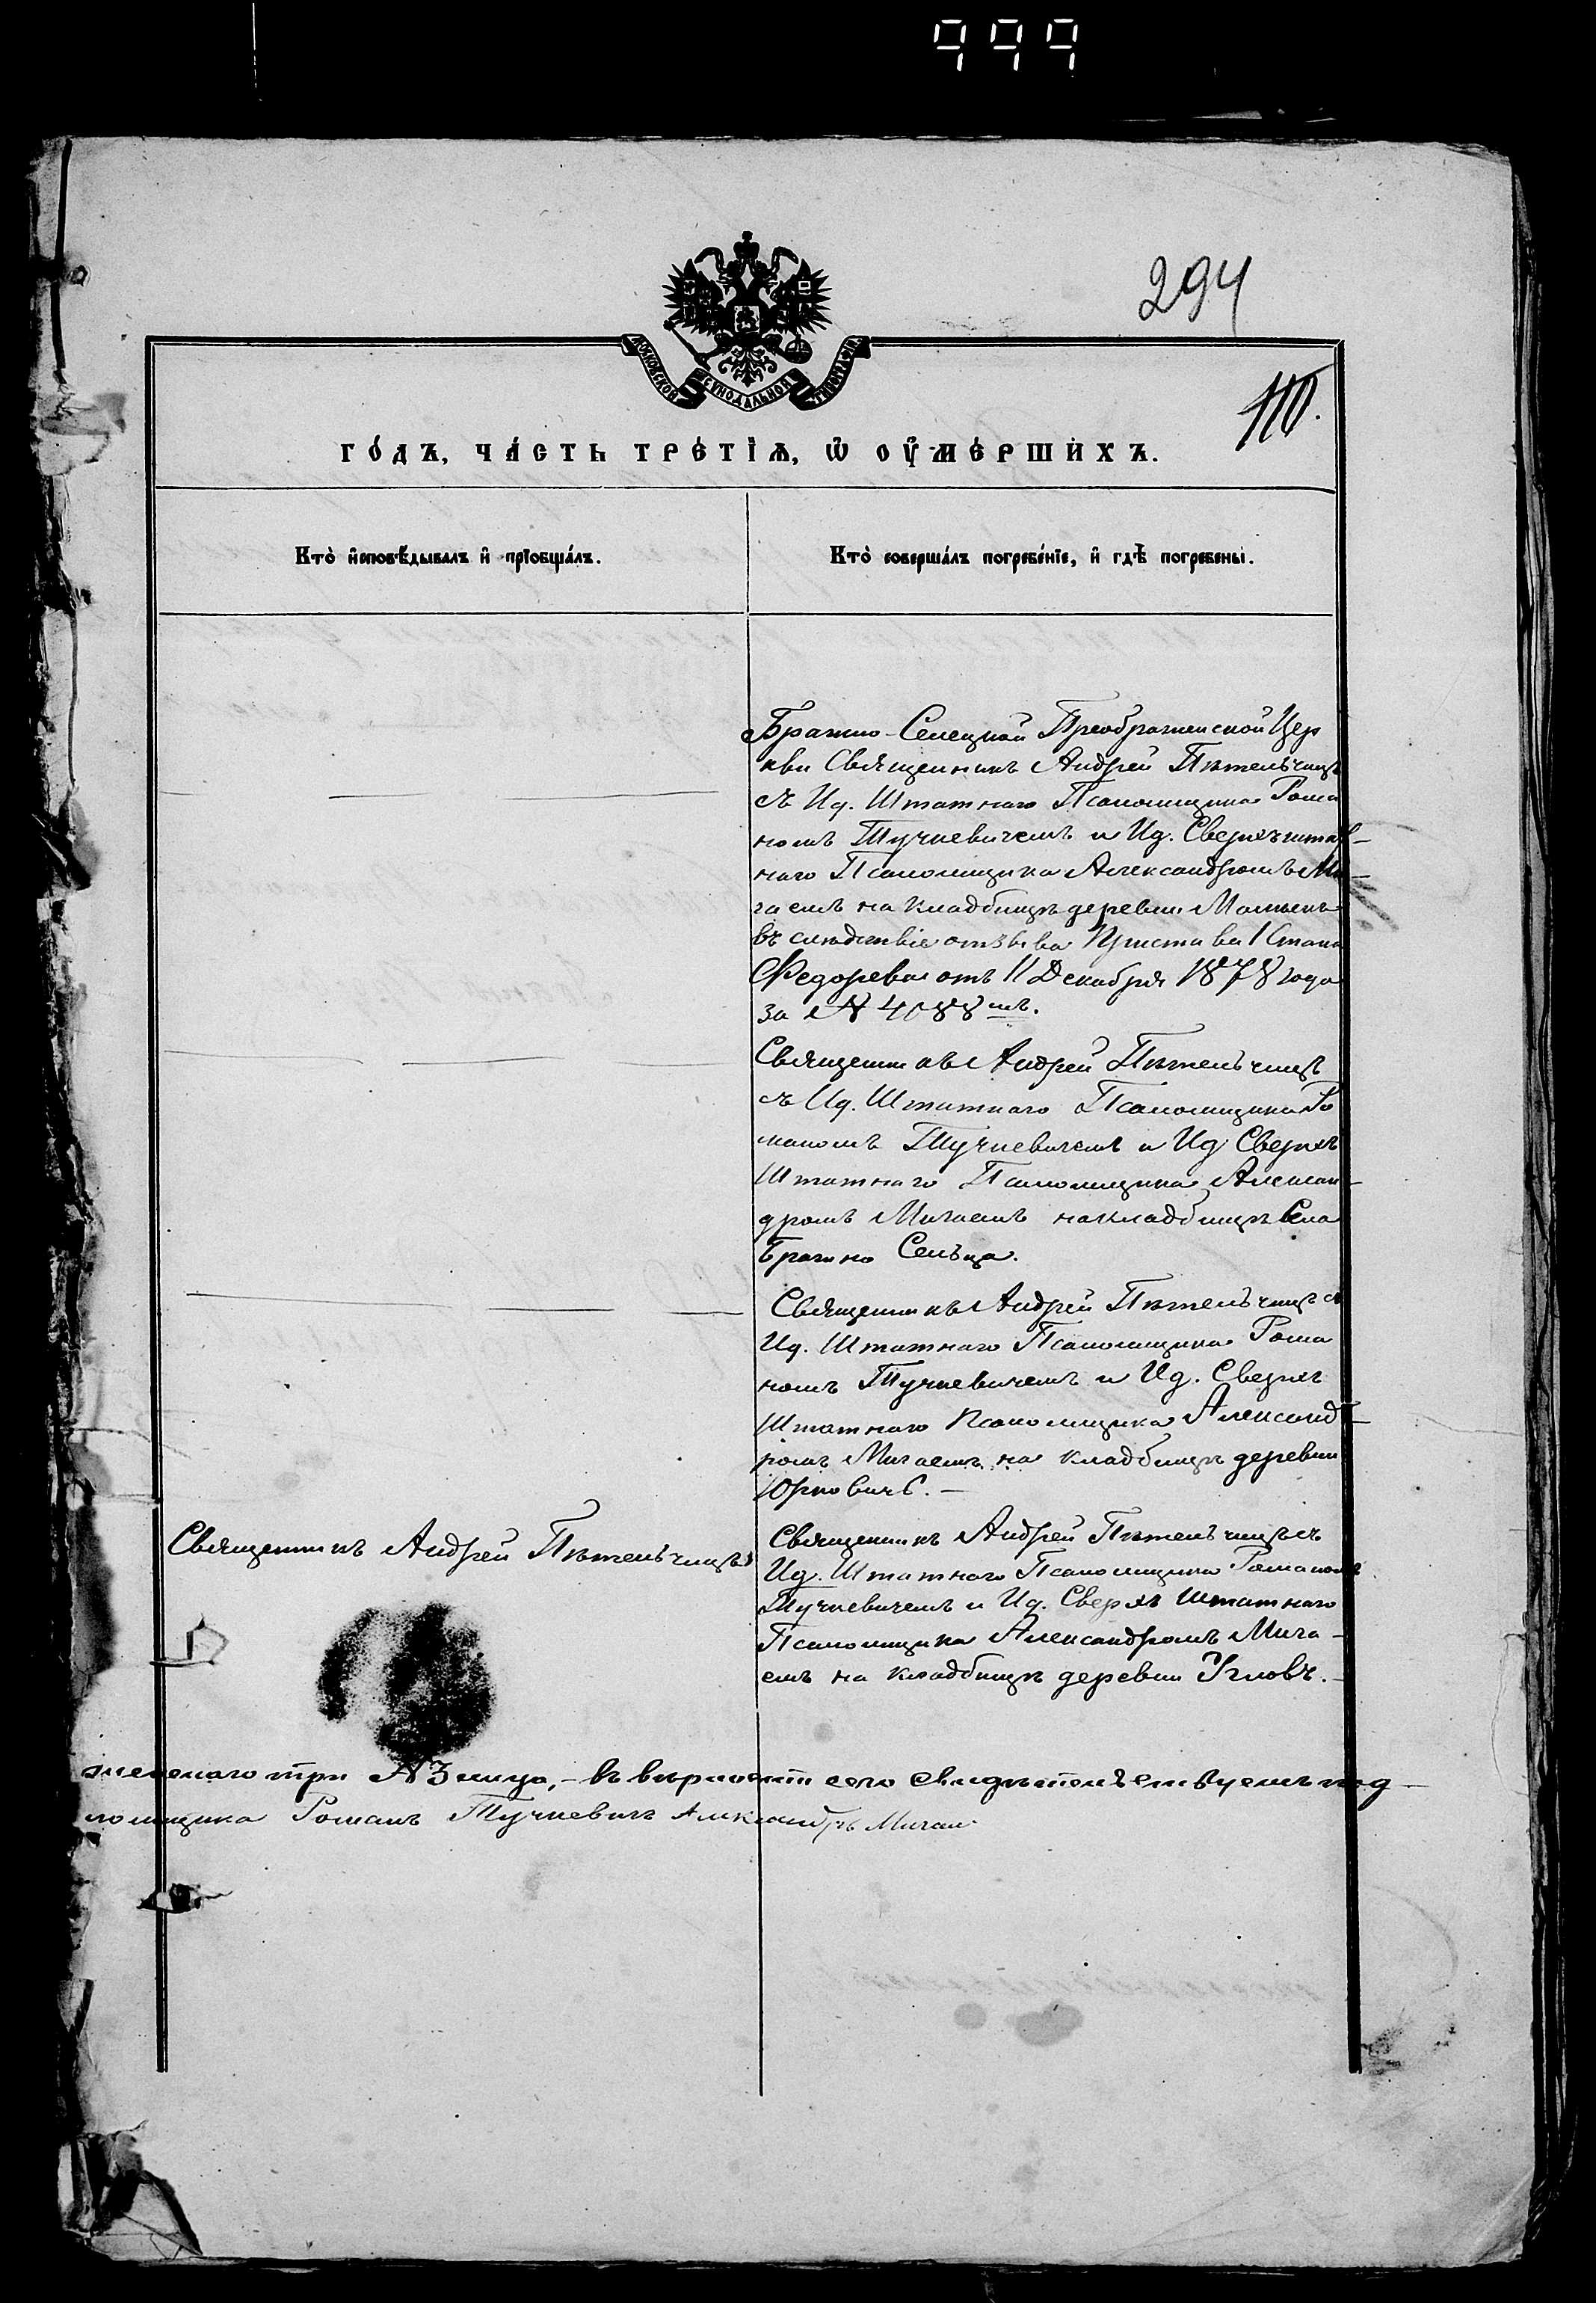 999
294
МОСКОВСКОЙ СѴНОДАЛЬНОЙ ТИПОГРАФІИ
110.
ГО́ДЪ, ЧА́СТЬ ТРЕ́ТІѦ, Ѡ҆ ОУ҆МЕ́РШИХЪ.
Кто̀ и҆сповѣ́дывалъ и҆ прїобща́лъ.
Кто̀ соверша́лъ погребе́нїе, и҆ гдѣ̀ погребены̀.
Бражно-Селецкой Преображенской Цер
кви Священникъ Андрей Пѣтельчицъ
съ Ид. Штатнаго Псаломщика Рома
номъ Тучкевичемъ и Ид. Сверхъштат-
наго Псаломщика Александромъ Ми-
гаемъ на кладбищѣ деревни
въ слѣдствіе отзыва Пристава 1 Стана
Федорева отъ 11 Декабря 1878 года
за № 4088 мъ.
Священникъ Андрей Пѣтельчицъ
съ Ид. Штатнаго Псаломщика Ро
маномъ Тучкевичемъ и Ид Сверхъ
Штатнаго Псаломщика Алексан-
дромъ Мигаемъ на кладбищѣ Села
Сельца.
Священникъ Андрей Пѣтельчицъ съ
Ид. Штатнаго Псаломщика Рома
номъ Тучкевичемъ и Ид. Сверхъ
Штатнаго Псаломщика Александ-
ромъ Мигаемъ на кладбищѣ деревни
Юрковичъ. -
Священникъ Андрей Пѣтельчицъ
Священникъ Андрей Пѣтельчицъ съ
Ид. Штатнаго Псаломщика Романомъ
Тучкевичемъ и Ид. Сверхъ Штатнаго
Псаломщика Александромъ Мига-
емъ на кладбищѣ деревни Угловъ. -
женскаго три - въ вѣрности сего свидѣтельствуемъ под-
ломщика Романъ Тучкевичъ Александръ Мигай